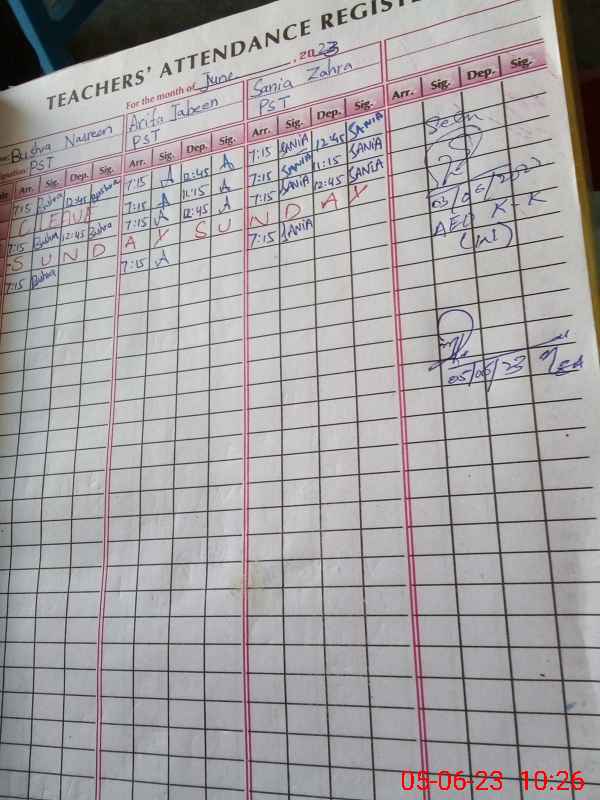 TEACHERS' ATTENDANCE REGISTE
For the month of June, 2023
Bushra Nasreen Arifa Jabeen Sania Zahra
PST PST PST
Arr. Sig. Dep. Sig. Arr. Sig. Dep. Sig. Arr. Sig. Dep. Sig. Arr. Sig. Dep. Sig.
7:15 Bushra 12:45 Bushra 7:15 A 12:45 A 7:15 SANIA 12:45 SANIA Seen
LEAVE 7:15 A 11:15 A 7:15 SANIA 11:15 SANIA
7:15 Bushra 12:45 Bushra 7:15 A 12:45 A 7:15 SANIA 12:45 SANIA 03/06/2023
S U N D A Y S U N D A Y AEO K-K
7:15 Bushra 7:15 A 7:15 SANIA (W)
05/06/23 MEA
05-06-23 10:26